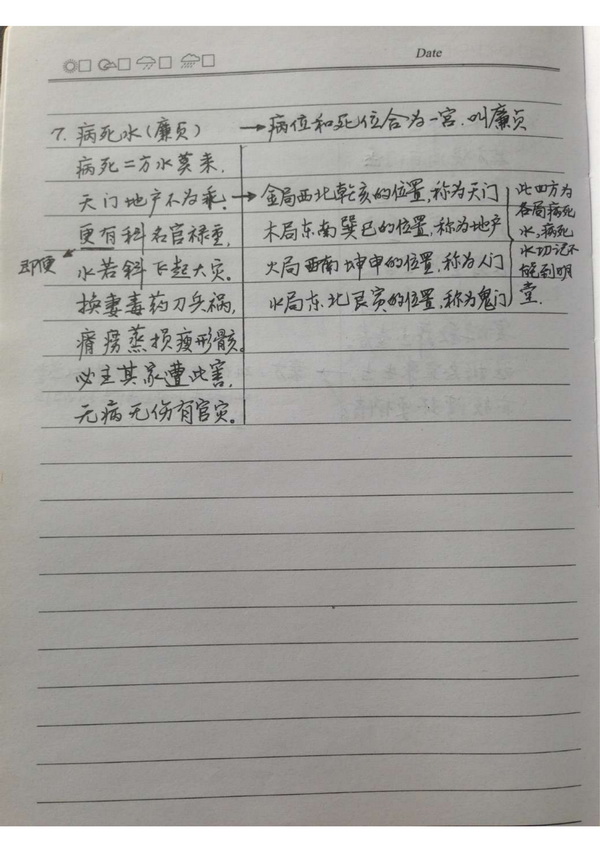 Date
7. 病死水(廉贞) → 病位和死位合为一宫.叫廉贞
病死二方水莫来.
天门地户不为乖. → 金局西北乾亥的位置,称为天门
更有科名官禄重, 木局东南巽巳的位置,称为地户
即便
水若斜飞起大灾。 火局西南坤申的位置,称为人门
换妻毒药刀兵祸, 水局东北艮寅的位置,称为鬼门
瘠痨蒸损瘦形骸。
必主其家遭此害,
无病无伤有官灾。
此四方为
各局病死
水,病死
水切记不
能到明
堂.